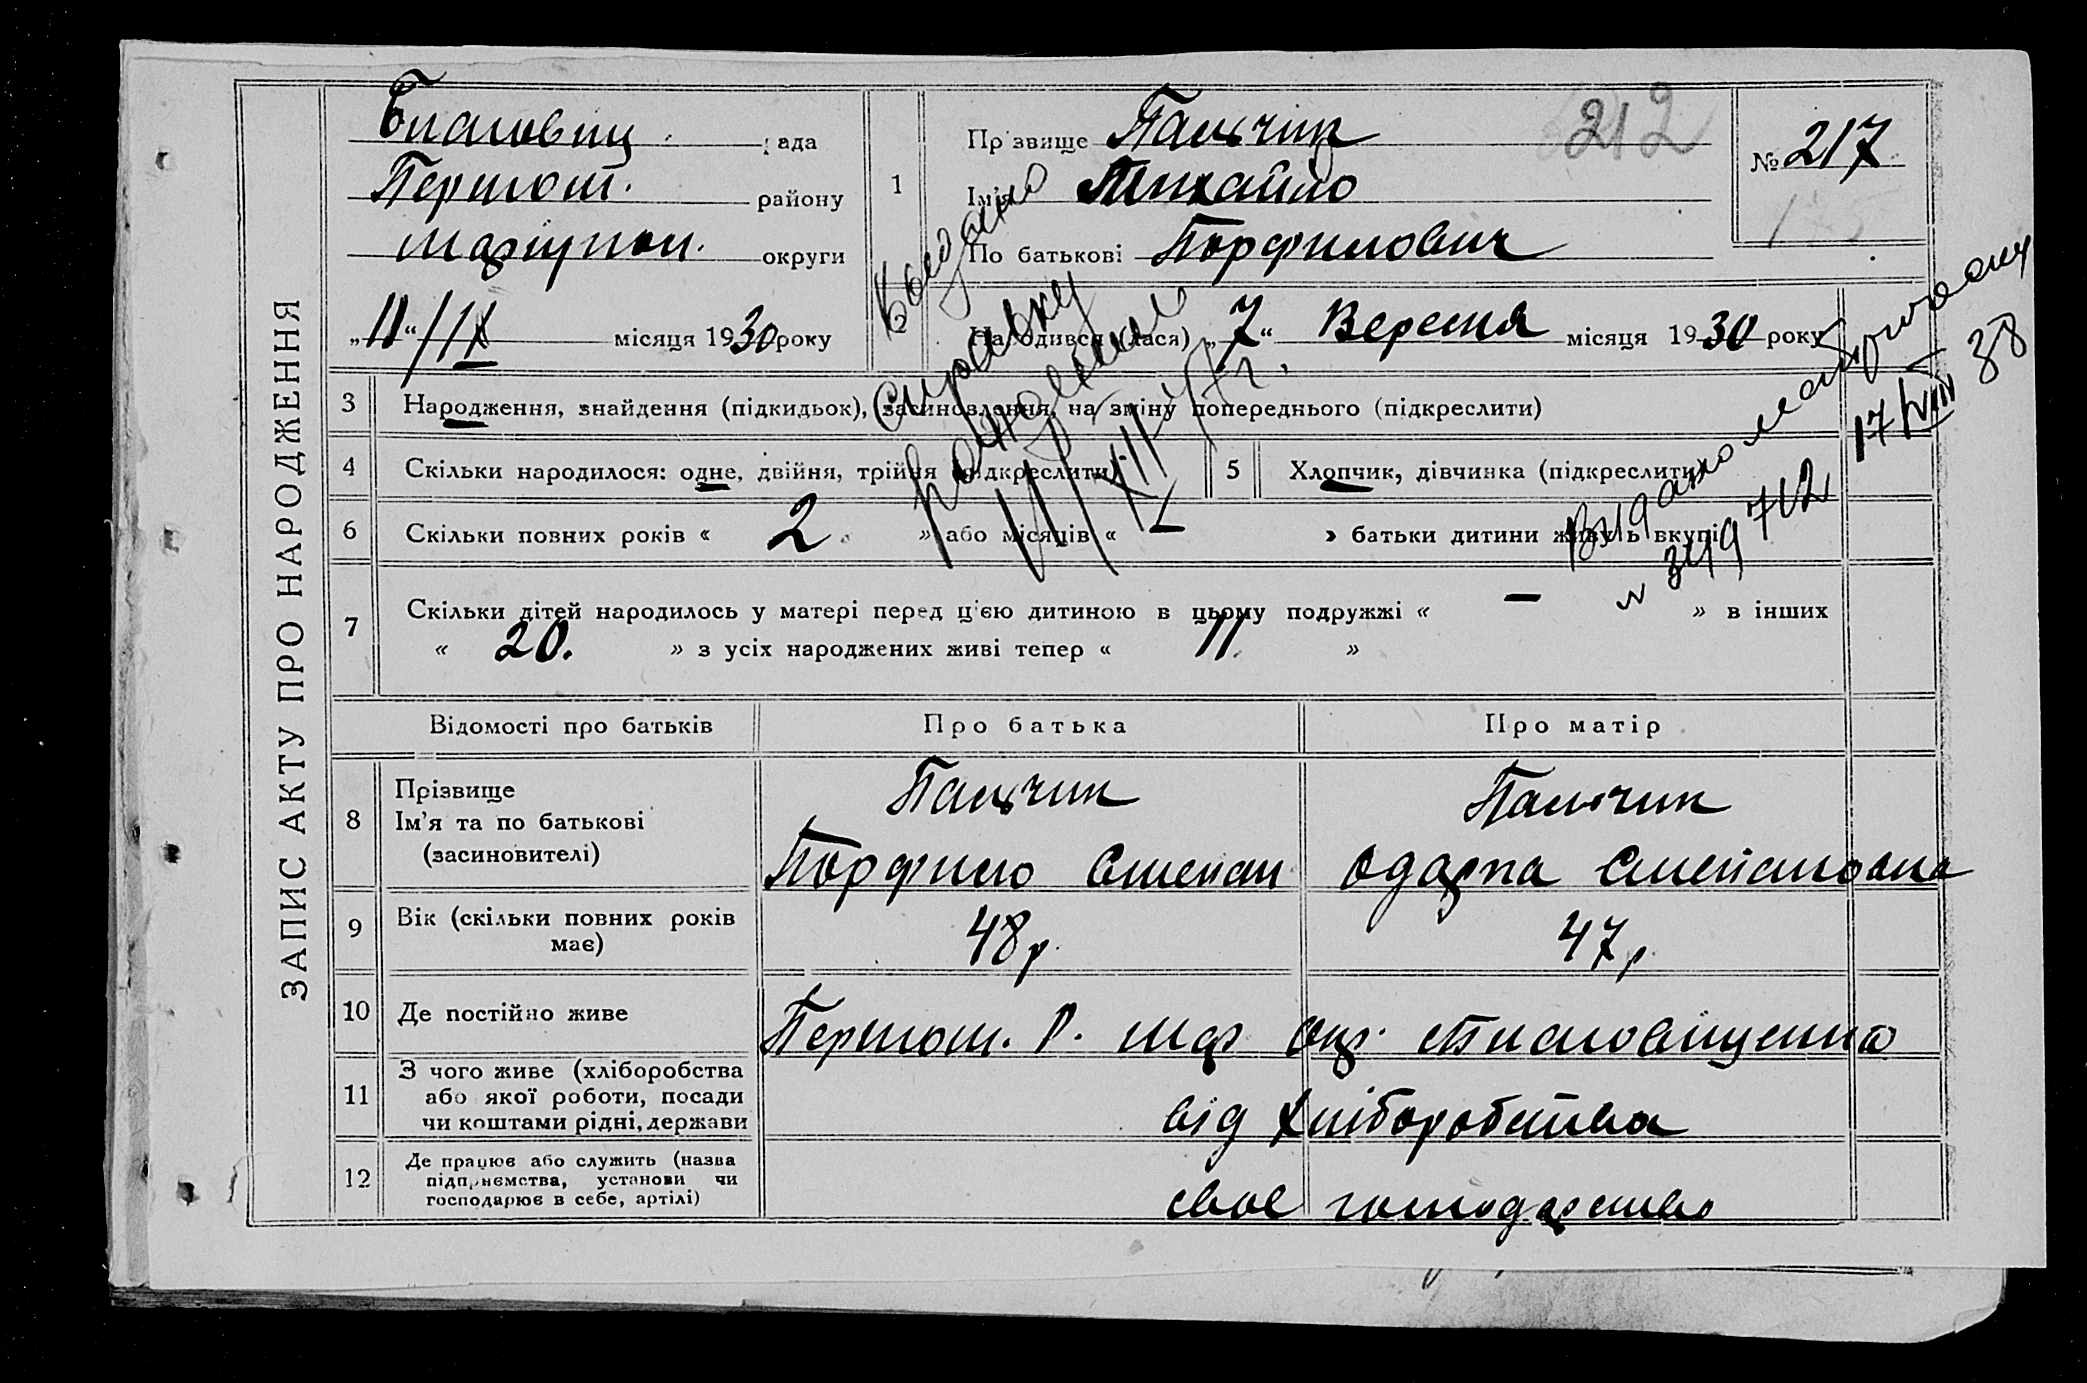 ЗАПИС АКТУ ПРО НАРОДЖЕННЯ
Благовіщ. рада
Першот. району
Маріупол. округи
„11“ /IX місяця 1930 року
1
Прізвище Пальчик
Ім'я Михайло
По батькові Порфилович
212
№ 217
175
Народився (лася) „7“ Вересня місяця 1930 року
3 Народження, знайдення (підкидьок), засиновлення, на зміну попереднього (підкреслити)
4 Скільки народилося: одне, двійня, трійня (підкреслити)
5 Хлопчик, дівчинка (підкреслити)
6 Скільки повних років « 2 » або місяців « — » батьки дитини живуть вкупі
7 Скільки дітей народилось у матері перед ц'єю дитиною в цьому подружжі « — » в інших
« 20. » з усіх народжених живі тепер « 11. »
Видано
справку
17/VIII 38
№ 349712
Відомості про батьків
Про батька
Про матір
8 Прізвище
Ім'я та по батькові
(засиновителі)
Пальчик
Порфило Степан
Пальчик
Одарка Степановна
9 Вік (скільки повних років
має)
48 р.
47 р.
10 Де постійно живе
Першот. Р. Мар. окр.
11 З чого живе (хліборобства
або якої роботи, посади
чи коштами рідні, держави
від хліборобства
12 Де працює або служить (назва
підприємства, установи чи
господарює в себе, артілі)
своє господарство